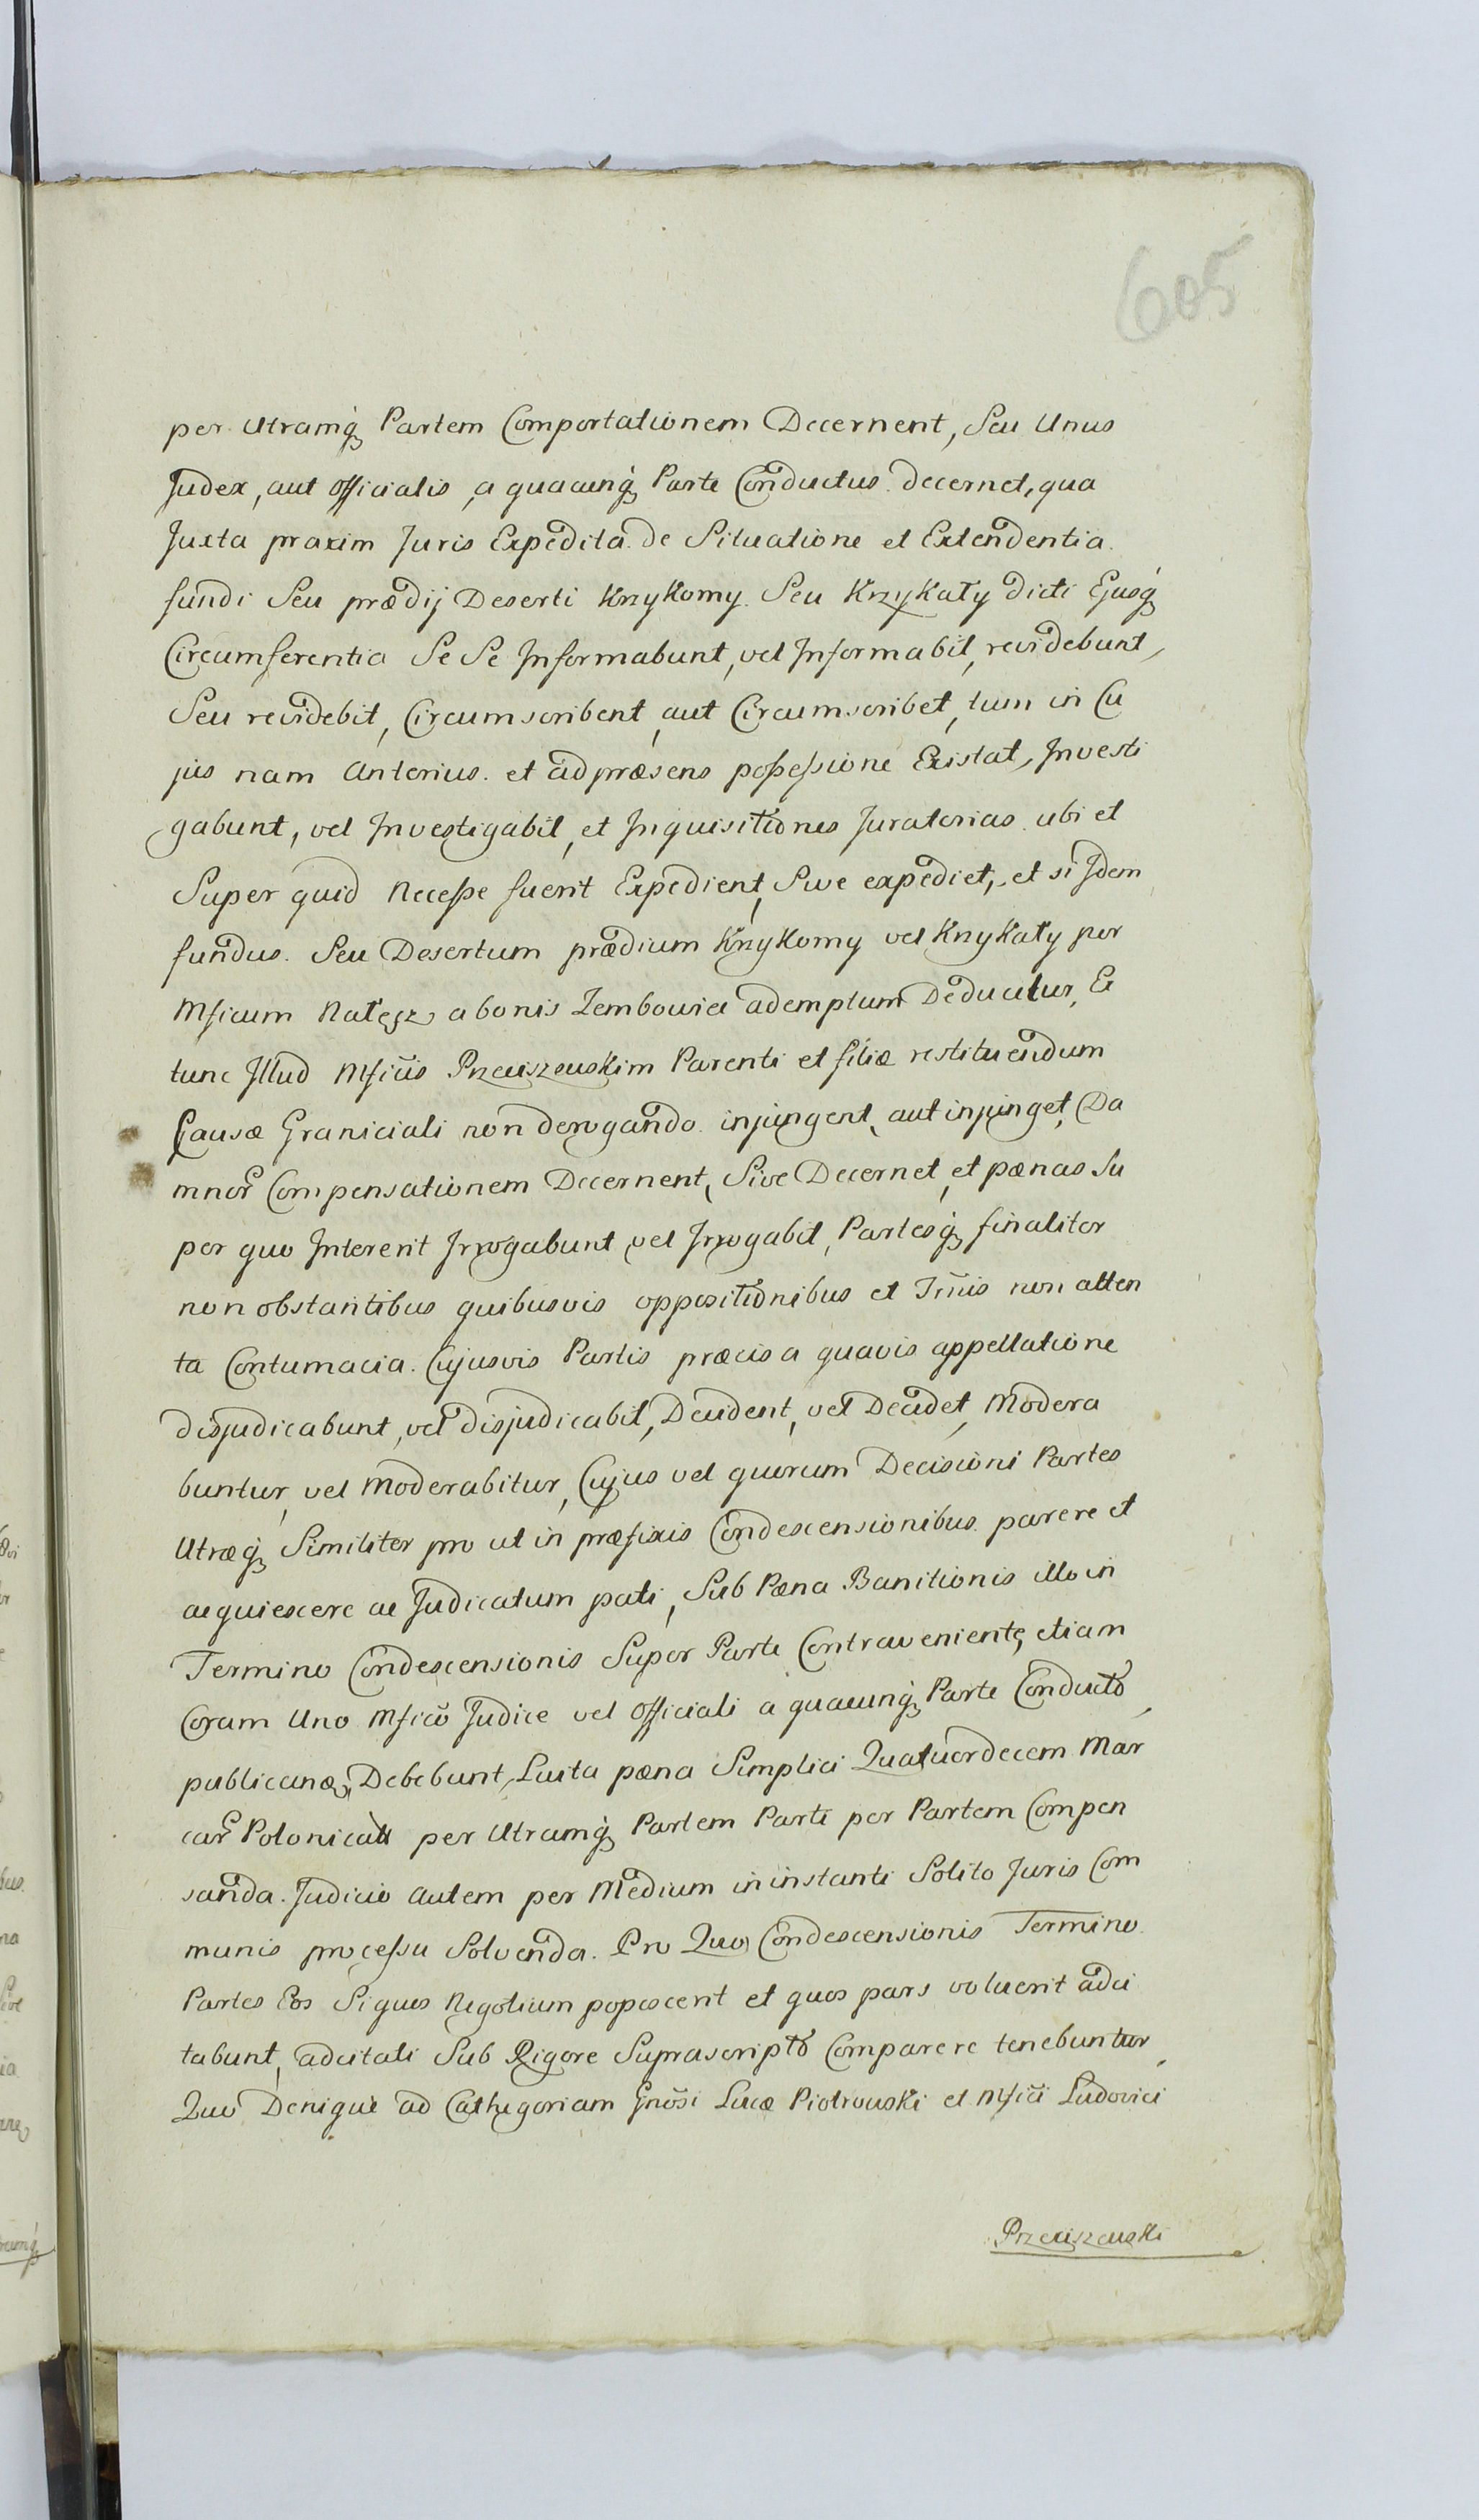 605
per Utramq; Partem Comportationem Decernent, Seu Unus
Judex, aut Officialis, a quacunq; Parte Conductus decernet, qua
Juxta praxim Juris Expedita de Situatione et Extendentia
fundi Seu prædij Deserti Krzykomy Seu Krzykały dicti Ejusq;
Circumferentia Se Se Informabunt, vel Informabit, revidebunt,
Seu revidebit, Circumscribent, aut Circumscribet, tum in Cu
jus nam Anterius et ad præsens possessione Existat, Investi
gabunt, vel Investigabit, et Inquisitiones Juratorias ubi et
Super quid Necesse fuerit Expedient, Sive expediet, et si Idem
fundus Seu Desertum prædium Krzykomy vel Krzykały per
Mficum Natęsz a bonis Zembowici ademptum Deducetur, Ex
tunc Illud Mficis Przeciszewskim Parenti et filiæ restituendum
Causæ Graniciali non derogando injungent, aut injunget, Da
mnor Compensationem Decernent, Sive Decernet, et pœnas Su
per quo Intererit Irrogabunt vel Irrogabit, Partesq; finaliter
non obstantibus quibusvis oppositionibus et Tmis non atten
ta Contumacia Cujusvis Partis præcisa quavis appellatione
disjudicabunt, vel disjudicabit, Decident, vel Decidet, Modera
buntur, vel Moderabitur, Cujus vel quorum Decisioni Partes
Utræq; Similiter pro ut in præfixis Condescensionibus parere et
acquiescere ac Judicatum pati, Sub Pœna Banitionis illo in
Termino Condescensionis Super Parte Contraveniente, etiam
Coram Uno Mfico Judice vel Officiali a quacunq; Parte Conducto
publicanæ, Debebunt, Luita pœna Simplici Quatuordecem Mar
car Polonicall per Utramq; Partem Parti per Partem Compen
sanda. Judicio autem per Medium in instanti Solito Juris Com
munis processu Solvenda. Pro Quo Condescensionis Termino
Partes Eos Siquos Negotium poposcerit et quos pars voluerit adci
tabunt, adcitati Sub Rigore Suprascripto Comparere tenebuntur,
Quo Denique ad Cathegoriam Gnosi Lucæ Piotrowski et Mfici Ludovici
Przeciszewski